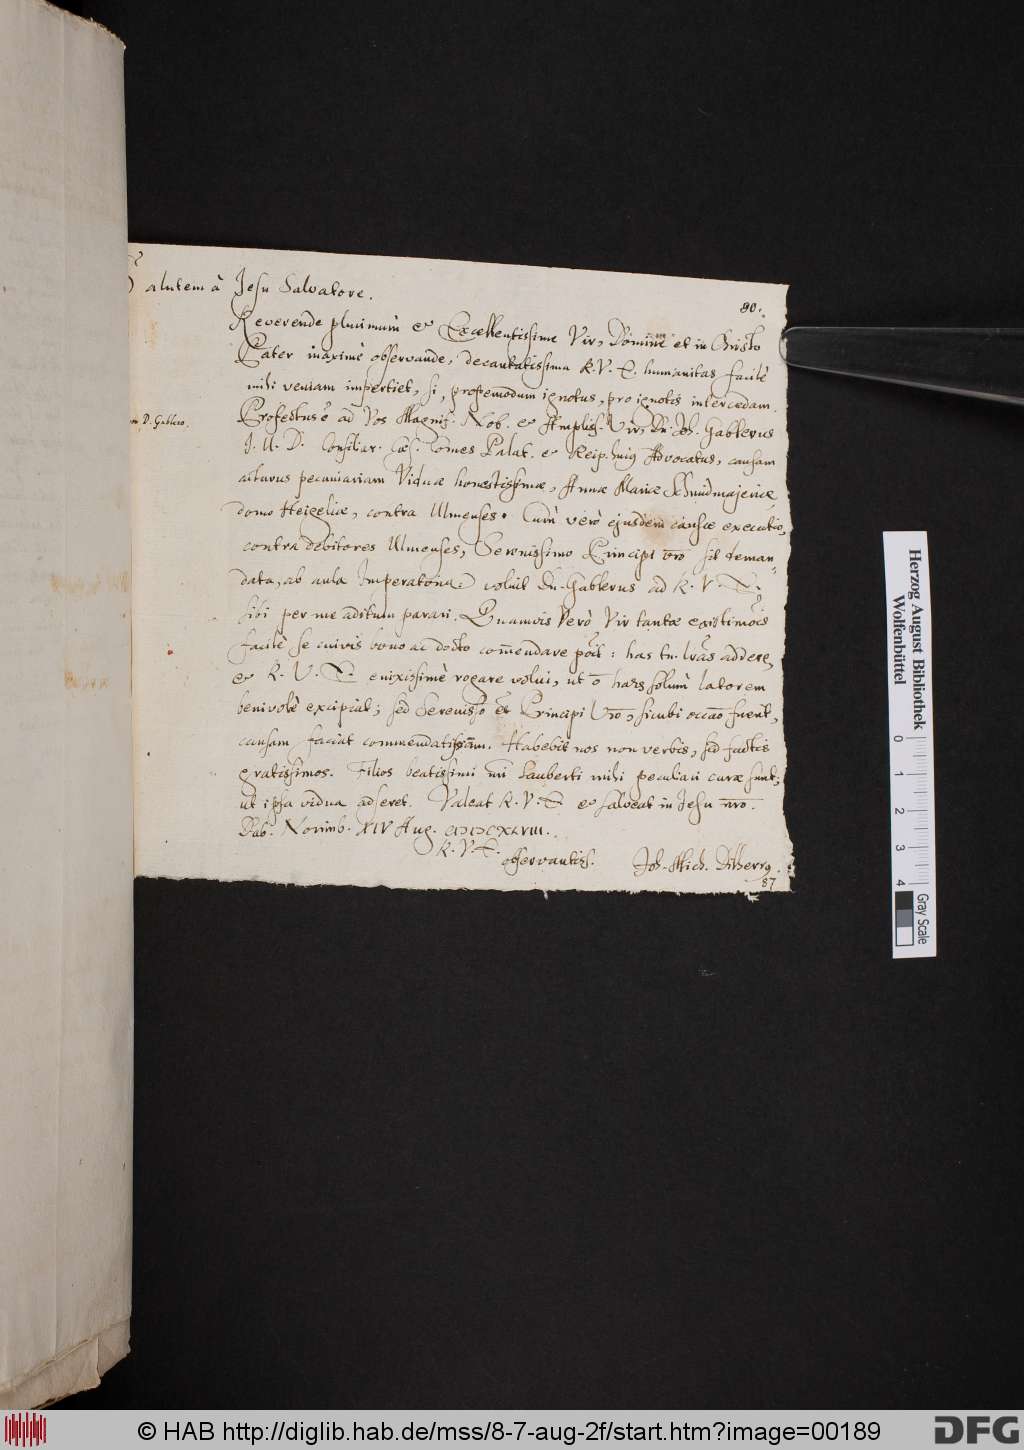 80.
Salutem à Jesu Salvatore.
Reverende plurimùm et Excellentissime Vir, Domine et in Christo
Pater maximè observande, decantatissima R. V. E. humanitas facilè
mihi veniam impertiet, si, propemodum ignotus, pro ignotis intercedam.
D. Gablero.
Profectus ē ad Vos Magnif. Nob. et Amplis. Vir, Dn. Joh. Gablerus
J. U. D. Consiliar. Cæs. Comes Palat. et Reip. huiq Advocatus, causam
acturus pecuniariam Viduæ honestissimæ, Annæ Mariæ Schmidmajeriæ,
domo Heigeliæ, contra Ulmenses. Cùm verò ejusdem causæ executio,
contra debitores Ulmenses, Serenissimo Principi vro sit deman-
data, ab aula Imperatoria: voluit Dn. Gablerus ad R. V. E.
sibi per me aditum parari. Quamvis Verò Vir tantæ existimōis
facilè se cuivis bono ac docto com̄endare pōit: has tn. lr̄as addere,
et R. V. E. enixissimè rogare volui, ut ō has solùm latorem
benivolè excipiat; sed Serenisso et Principi Vrō, sicubi occāo fuerit,
causam faciat commendatissam. Habebit nos non verbis, sed factis
gratissimos. Filios beatissimi mī Sauberti mihi peculiari curæ sunt;
ut ipsa vidua adseret. Valeat R. V. E. et salveat in Jesu nrō.
Dab. Norimb. XIV Aug. CIↃIↃCXLVIII.
R. V. E.
observantiss. Joh. Mich. Dilherrg.
87
Herzog August Bibliothek
Wolfenbüttel
0 1 2 3 4
Gray Scale
© HAB http://diglib.hab.de/mss/8-7-aug-2f/start.htm?image=00189
DFG